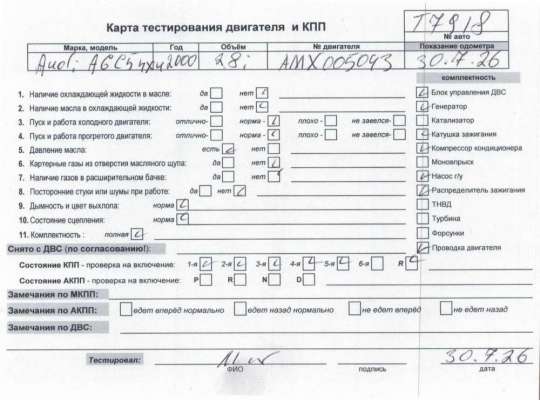 Карта тестирования двигателя и КПП
Т7918
№ авто
Марка, модель Год Объём № двигателя Показание одометра
Audi A6C5 2000 2.8i AMX005093 30.7.26
комплектность
1. Наличие охлаждающей жидкости в масле: да нет
2. Наличие масла в охлаждающей жидкости: да нет
3. Пуск и работа холодного двигателя: отлично- норма - плохо - не завелся-
4. Пуск и работа прогретого двигателя: отлично- норма - плохо - не завелся-
5. Давление масла: есть нет
6. Картерные газы из отверстия масляного щупа: да нет
7. Наличие газов в расширительном бачке: да нет
8. Посторонние стуки или шумы при работе: да нет
9. Дымность и цвет выхлопа: норма
10. Состояние сцепления: норма
11. Комплектность : полная
Блок управления ДВС
Генератор
Катализатор
Катушка зажигания
Компрессор кондиционера
Моновпрыск
Насос г/у
Распределитель зажигания
ТНВД
Турбина
Форсунки
Проводка двигателя
Снято с ДВС (по согласованию!):
Состояние КПП - проверка на включение: 1-я 2-я 3-я 4-я 5-я 6-я R
Состояние АКПП - проверка на включение: P R N D
Замечания по МКПП:
Замечания по АКПП: едет вперёд нормально едет назад нормально не едет вперёд не едет назад
Замечания по ДВС:
Тестировал: 30.7.26
ФИО подпись дата